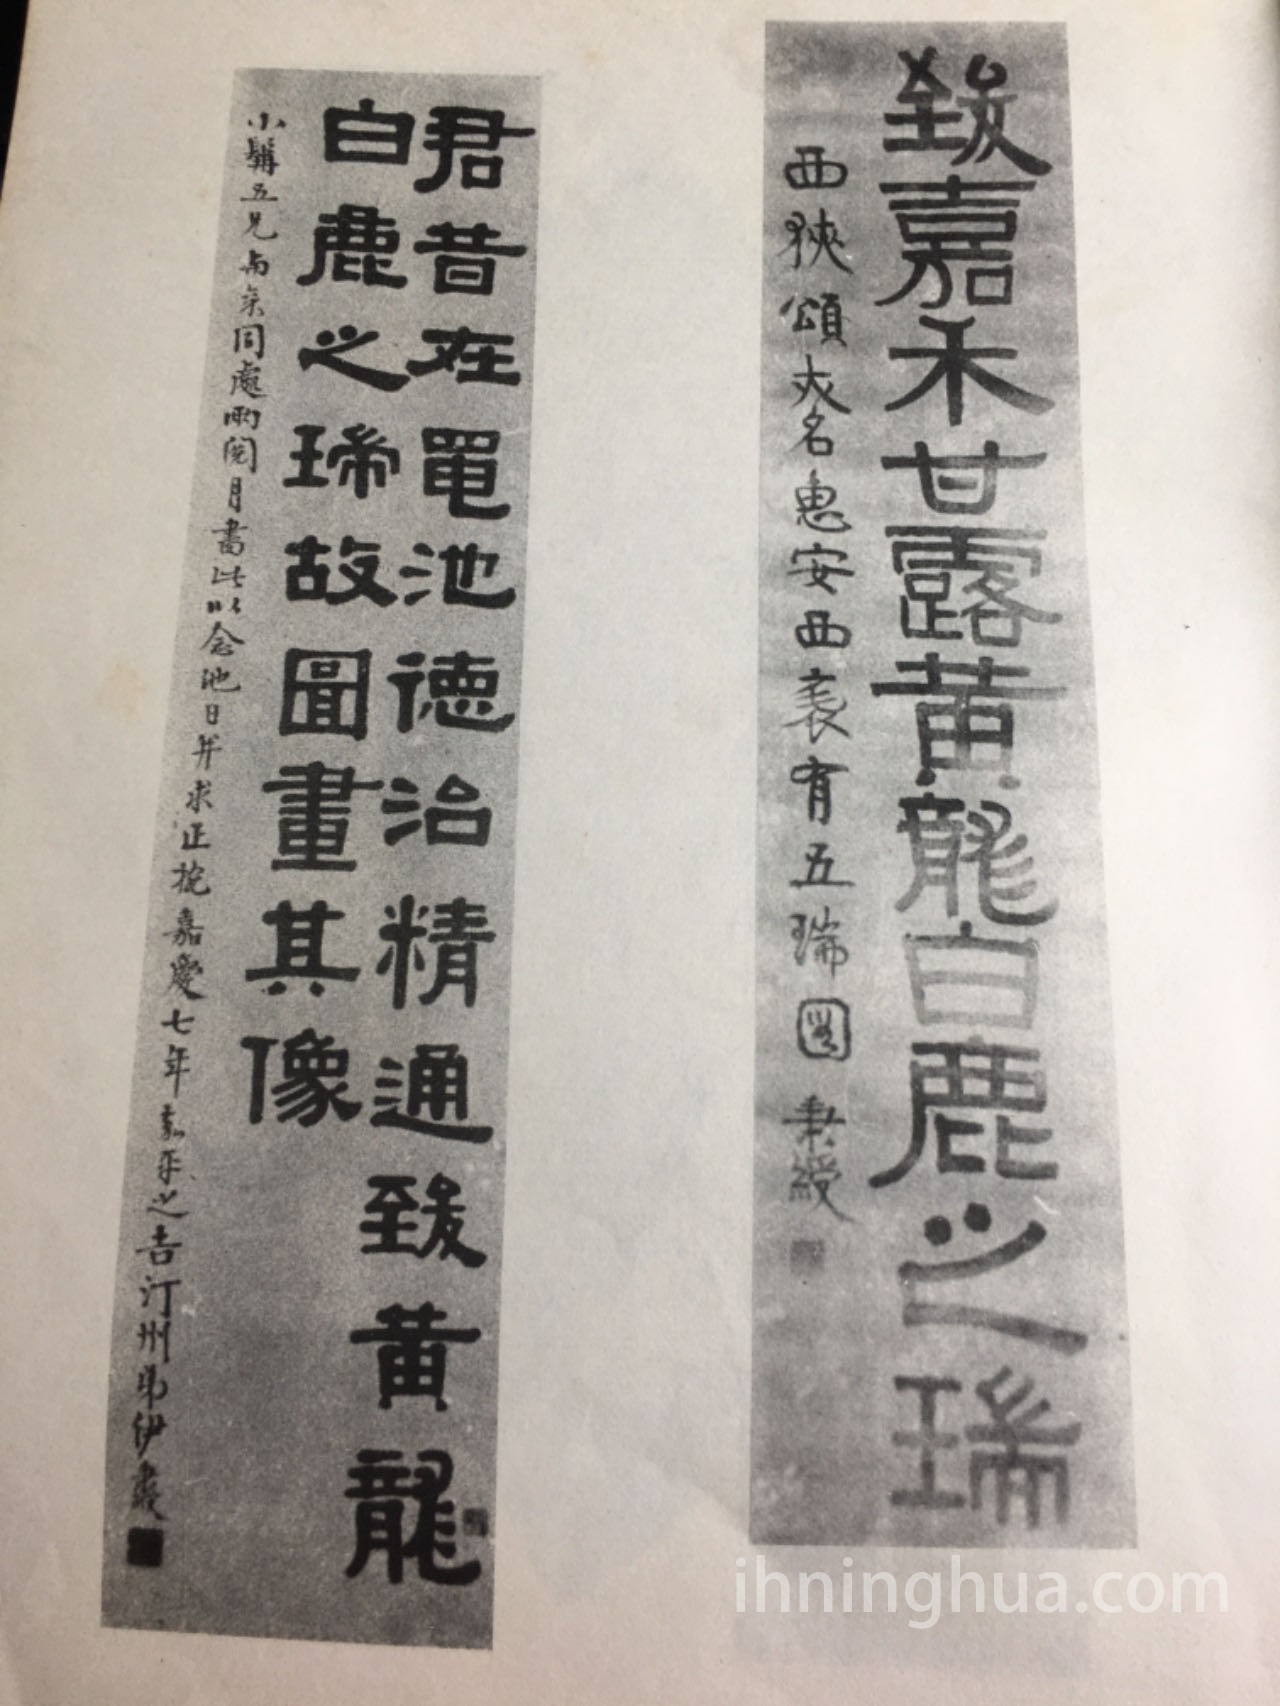 致嘉禾甘露黃龍白鹿之瑞
西狹頌大名惠安西表有五瑞圖 秉綬
君昔在黽池德治精通致黃龍
白鹿之瑞故圖畫其像
五兄與余同處兩閱月書此以念他日并求正挽嘉慶七年嘉平之吉汀州弟伊秉綬
ihninghua.com